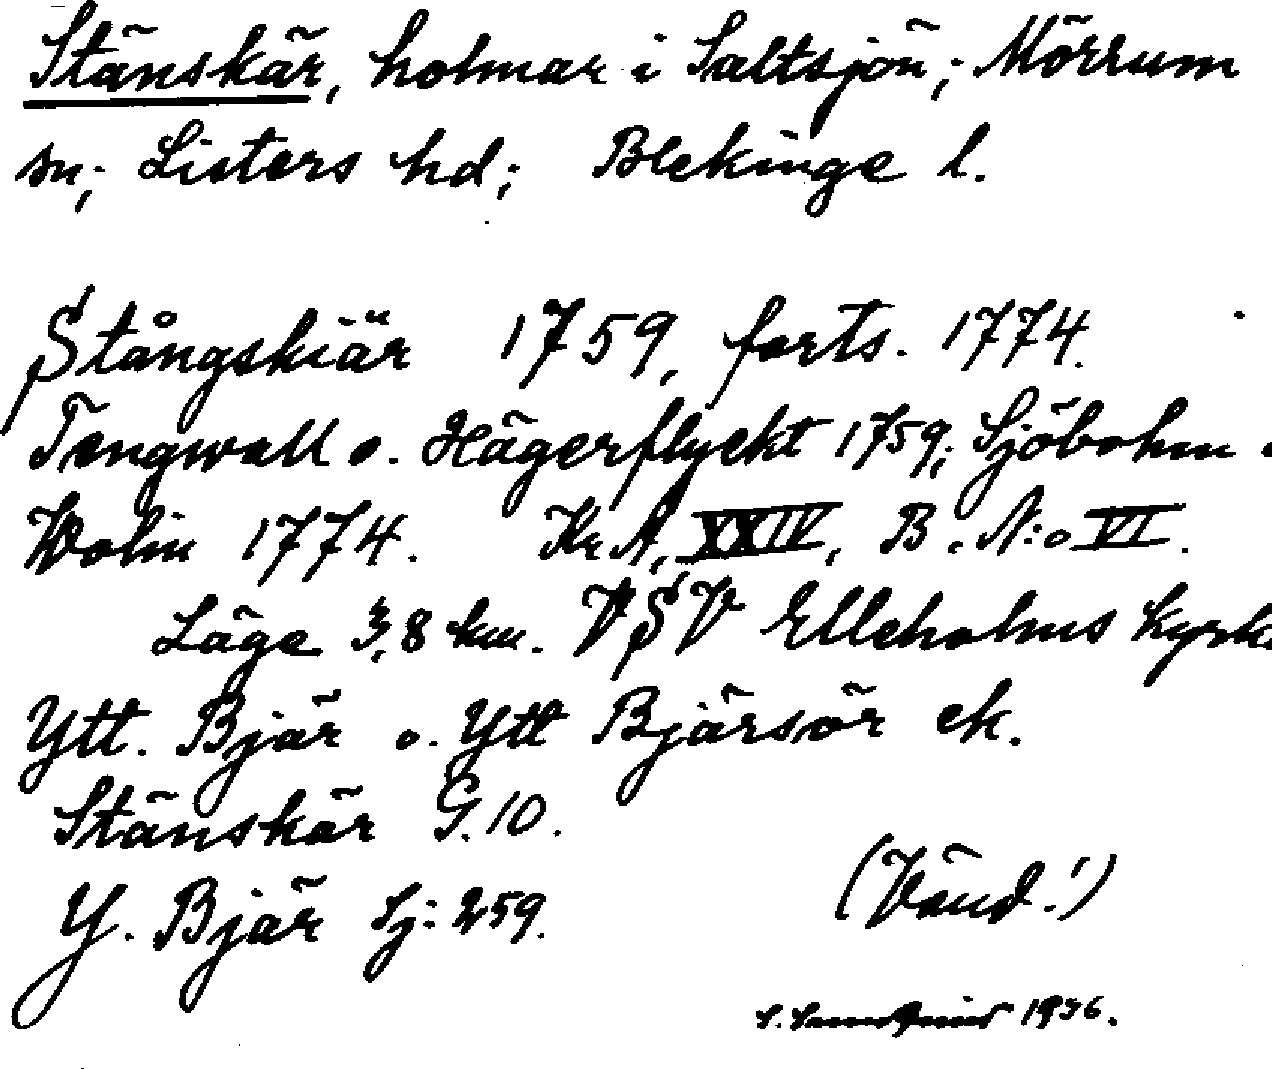 Stänskär, holmar i Saltsjön; Mörrum
sn; Listers hd; Blekinge l.
Stångskiär 1759, forts. 1774.
Tengwall o. Hägerflyckt 1759; Sjöbohm
Wolin 1774. KrA, XXIV, B. N:o VI.
Läge 3,8 km. VSV Elleholms kyrk
Ytt. Bjär o. Ytt Bjärsör ek.
Stänskär G.10.
Y. Bjär Sj: 259.
(Vänd!)
1936.